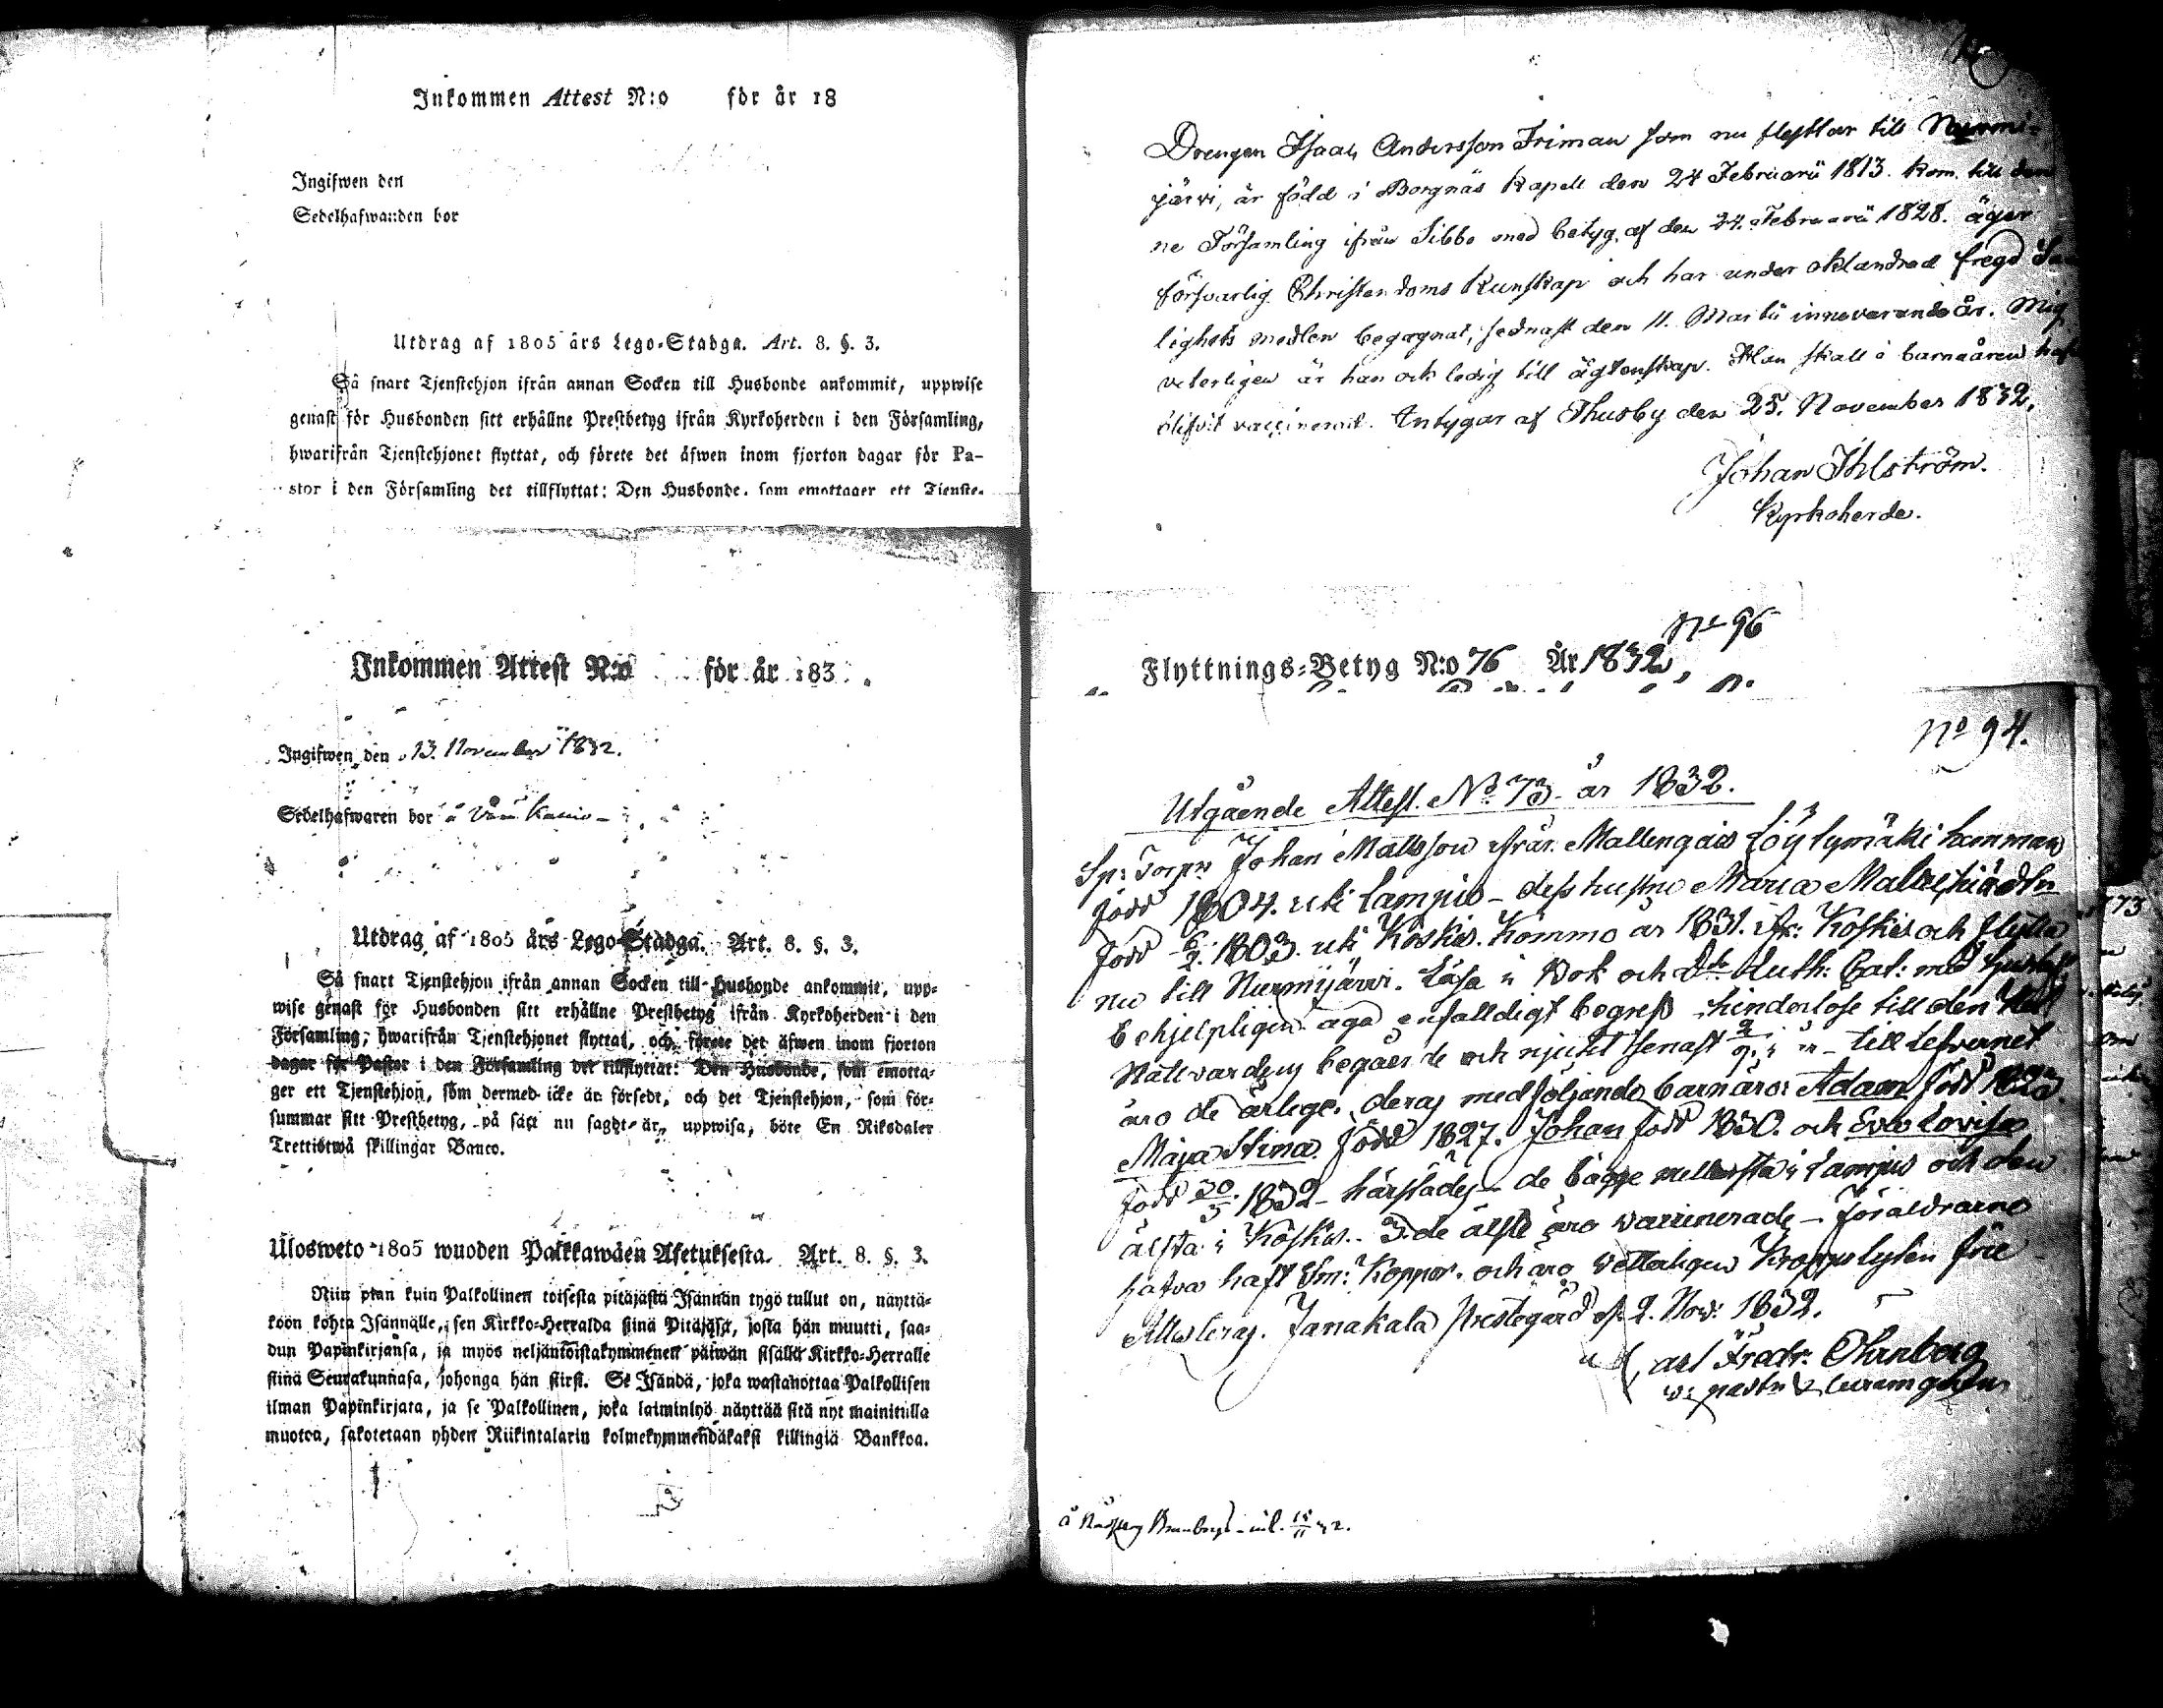 Inkommen Attest N:o för år 18
Ingifwen den
Sedelhafwanden bor
Utdrag af 1805 års Lego-Stadga. Art. 8. §. 3.
Så snart Tjenstehjon ifrån annan Socken till Husbonde ankommit, uppwise
genast för Husbonden sitt erhållne Prestbetyg ifrån Kyrkoherden i den Församling,
hwarifrån Tjenstehjonet flyttat, och förete det äfwen inom fjorton dagar för Pa-
stor i den Församling det tillflyttat: Den Husbonde, som emottager ett Tjenste-
Inkommen Attest N:o för år 183 .
Ingifwen den 13. November 1832.
Sedelhafwaren bor å
Utdrag af 1805 års Lego-Stadga. Art. 8. §. 3.
Så snart Tjenstehjon ifrån annan Socken till Husbonde ankommit, upp-
wise genast för Husbonden sitt erhållne Prestbetyg ifrån Kyrkoherden i den
Församling, hwarifrån Tjenstehjonet flyttat, och förete det äfwen inom fjorton
dagar för Pastor i den Församling det tillflyttat: Den Husbonde, som emotta-
ger ett Tjenstehjon, som dermed icke är försedt, och det Tjenstehjon, som för-
summar sitt Prestbetyg, på sätt nu sagdt är, uppwisa, böte En Riksdaler
Trettiotwå skillingar Banco.
Ulosweto 1805 wuoden Palkkawäen Asetuksesta. Art. 8. §. 3.
Niin pian kuin Palkollinen toisesta pitäjästä Isännän tygö tullut on, näyttä-
köön kohta Isännälle, sen Kirkko-Herralda siinä Pitäjäsä, josta hän muutti, saa-
dun Papinkirjansa, ja myös neljäntoistakymmenen päiwän sisällä Kirkko-Herralle
siinä Seurakunnasa, johonga hän siirsi. Se Isändä, joka wastanottaa Palkollisen
ilman Papinkirjata, ja se Palkollinen, joka laiminlyö näyttää sitä nyt mainitulla
muotoa, sakotetaan yhden Riikintalarin kolmekymmendäkaksi killingiä Bankkoa.
Drengen Isaak Andersson Friman som nu flyttar till Nurmi-
järvi, är född i Borgnäs Kapell den 24 Februarii 1813. kom till den
ne Församling ifrån Sibbo med betyg af den 24. Februarii 1828. äger
försvarlig Christendoms Kunskap och har under oklandrad fregd Sa
lighets medlen begagnat, sednast den 11. Martii innevarande år. Mig
veterligen är han ock ledig till ägtenskap. Han skall i barnaåren haf
blifvit vaccinerad. Intygar af Thusby den 25. November 1832.
Johan Ihlström.
Kyrkoherde.
No 96
Flyttnings-Betyg N:o 76 År 1832,
No 94.
Utgående Attest. No 73. år 1832.
Sp: Torpn Johan Mattsson ifrån Mallengais Löytymäki hemman
född 1804. uti Lampis - dess hustru Maria
född 6/2. 1803. uti Koskis. Kommo år 1831. ifr: Koskis och flytta
nu till Nurmijärvi. Läsa i Bok och Dr Luth: Cat: med
behjelpligen äga enfalldigt begrep hinderlöse till den Hel
Nattvarden begående och njutit senast till lefvernet
äro de ärlige. deras medföljande barn äro: Adam född
Maja Stina född 1827. Johan född 1830. och Eva Lovisa
född 30/3 1832 - härstädes - de bägge mellersta i Lampis och den
älsta i Koskis. 3 de älste äro vaccinerade - Föräldrarne
hafva haft Sm: Koppor. och äro vetterligen Kroppslyten frie
Attesteras. Janakala Prestegård d. 2. Nov: 1832.
Carl Fredr: Ohrnberg